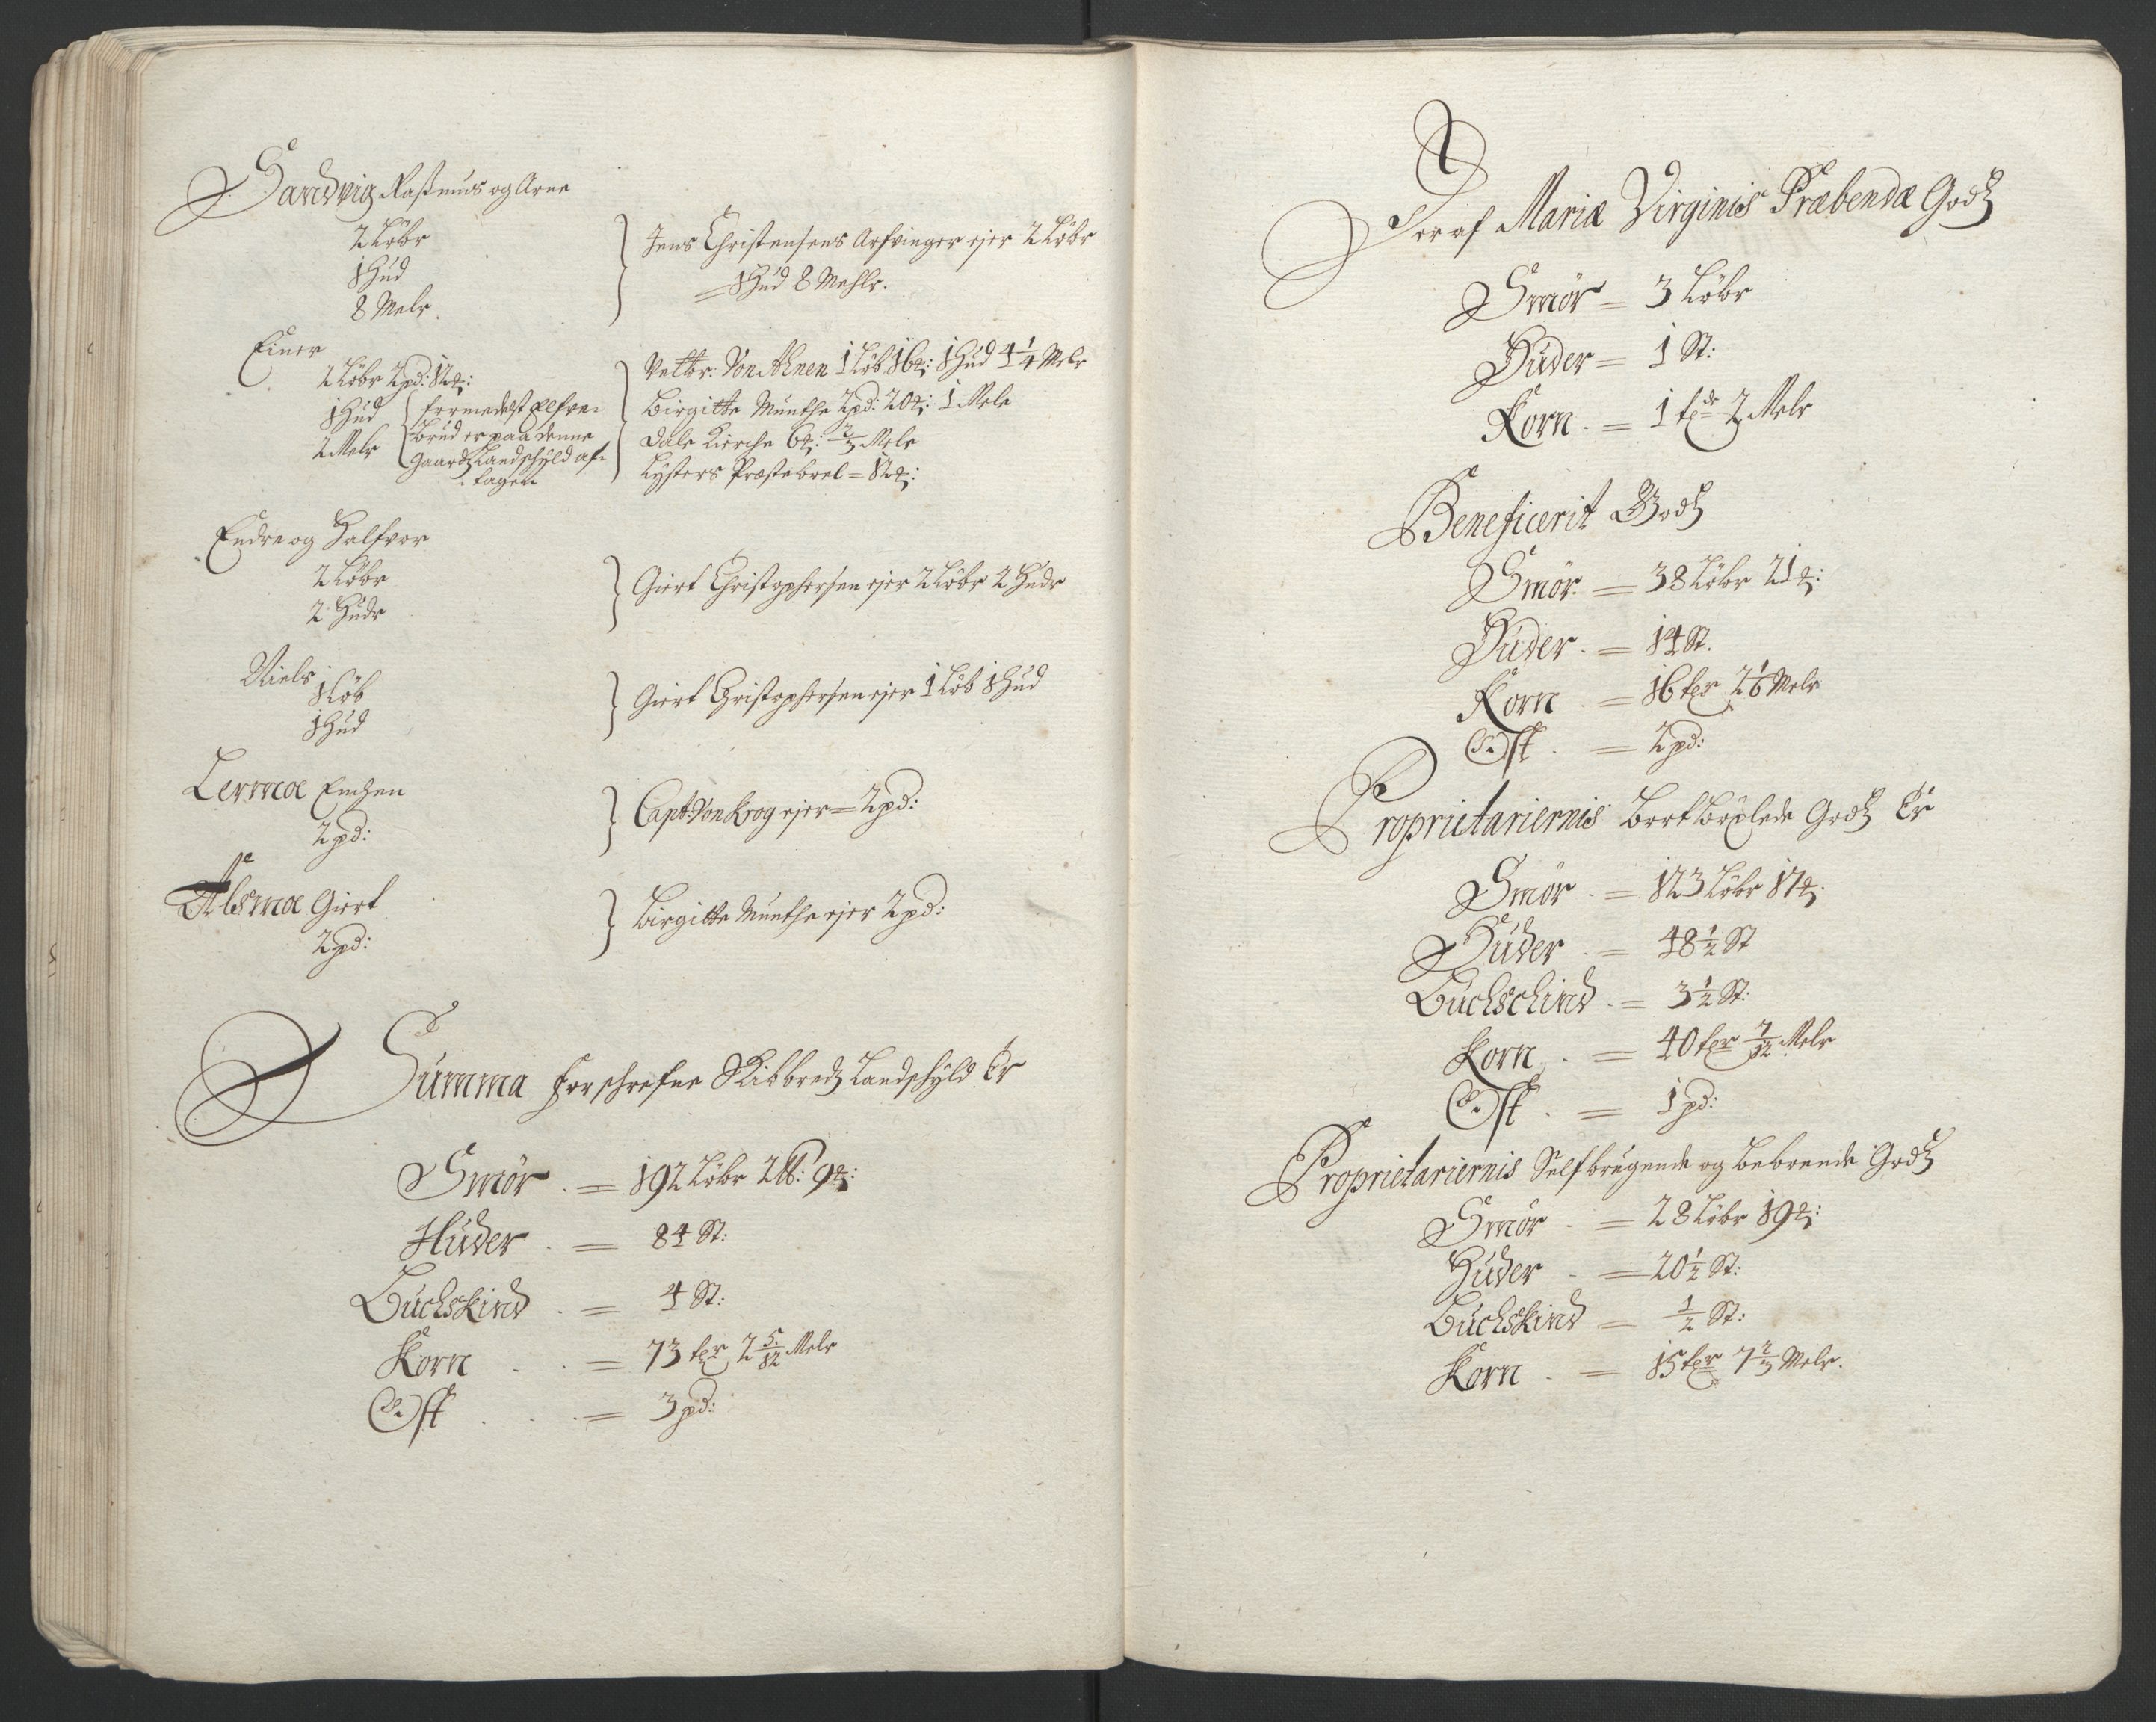 Sandvig Rasmus og Arne
2 Löbr
1 Hud
8 Melr.
Jens Christensens Arfvinger ejer 2 Löbr
= 1 Hud 8 Mehlr.
Einer
2 Löbr 2 pd: 12 ℔:
1 Hud
2 Melr
formedelst Elfve-
brud er paa denne
Gaardz Landschyld af-
tagen
Velbr: Von Ahnen 1 Löb 16 ℔: 1 Hud 4 1/4 Melr
Birgitte Munthe 2 pd: 20 ℔: 1 Mele
Dale Kirche 6 ℔: 2/3 Mele
Lysters Præsteboel = 12 ℔:
Endre og Halfvor
2 Löbr
2 Hudr
Giert Christophersen ejer 2 Löbr 2 Hudr
Niels
1 Löb
1 Hud
Giert Christophersen ejer 1 Löb 1 Hud
Lermoe Enchen
2 pd:
Capt: Von Krog ejer = 2 pd:
Alsmoe Giert
2 pd:
Birgitte Munthe ejer 2 pd:
Summa forschrefne Skibbredz Landschyld Er
Smör = 192 Löbr 2 ℔: 9 ℔:
Huder = 84 St:
Buchskind = 4 St:
Korn = 73 tpr 2 5/12 Melr
Ost = 3 pd:
Der af Mariæ Virginis Præbendæ Godz
Smör = 3 Löbr
Huder = 1 St:
Korn = 1 tpde 2 Melr
Beneficerit Godz
Smör = 38 Löbr 21 ℔:
Huder = 14 St.
Korn = 16 tpr 2 1/6 Melr
Ost = 2 pd:
Proprietariernis bortböxlede Godz Er
Smör = 123 Löbr 17 ℔:
Huder = 48 1/2 St
Buchschind = 3 1/2 St:
Korn = 40 tpr 7/12 Melr
Ost = 1 pd:
Proprietariernis Selfbrugende og beboende Godz
Smör = 28 Löbr 19 ℔:
Huder = 20 1/2 St:
Buchskind = 1/2 St:
Korn = 15 tpr 7 2/3 Melr.